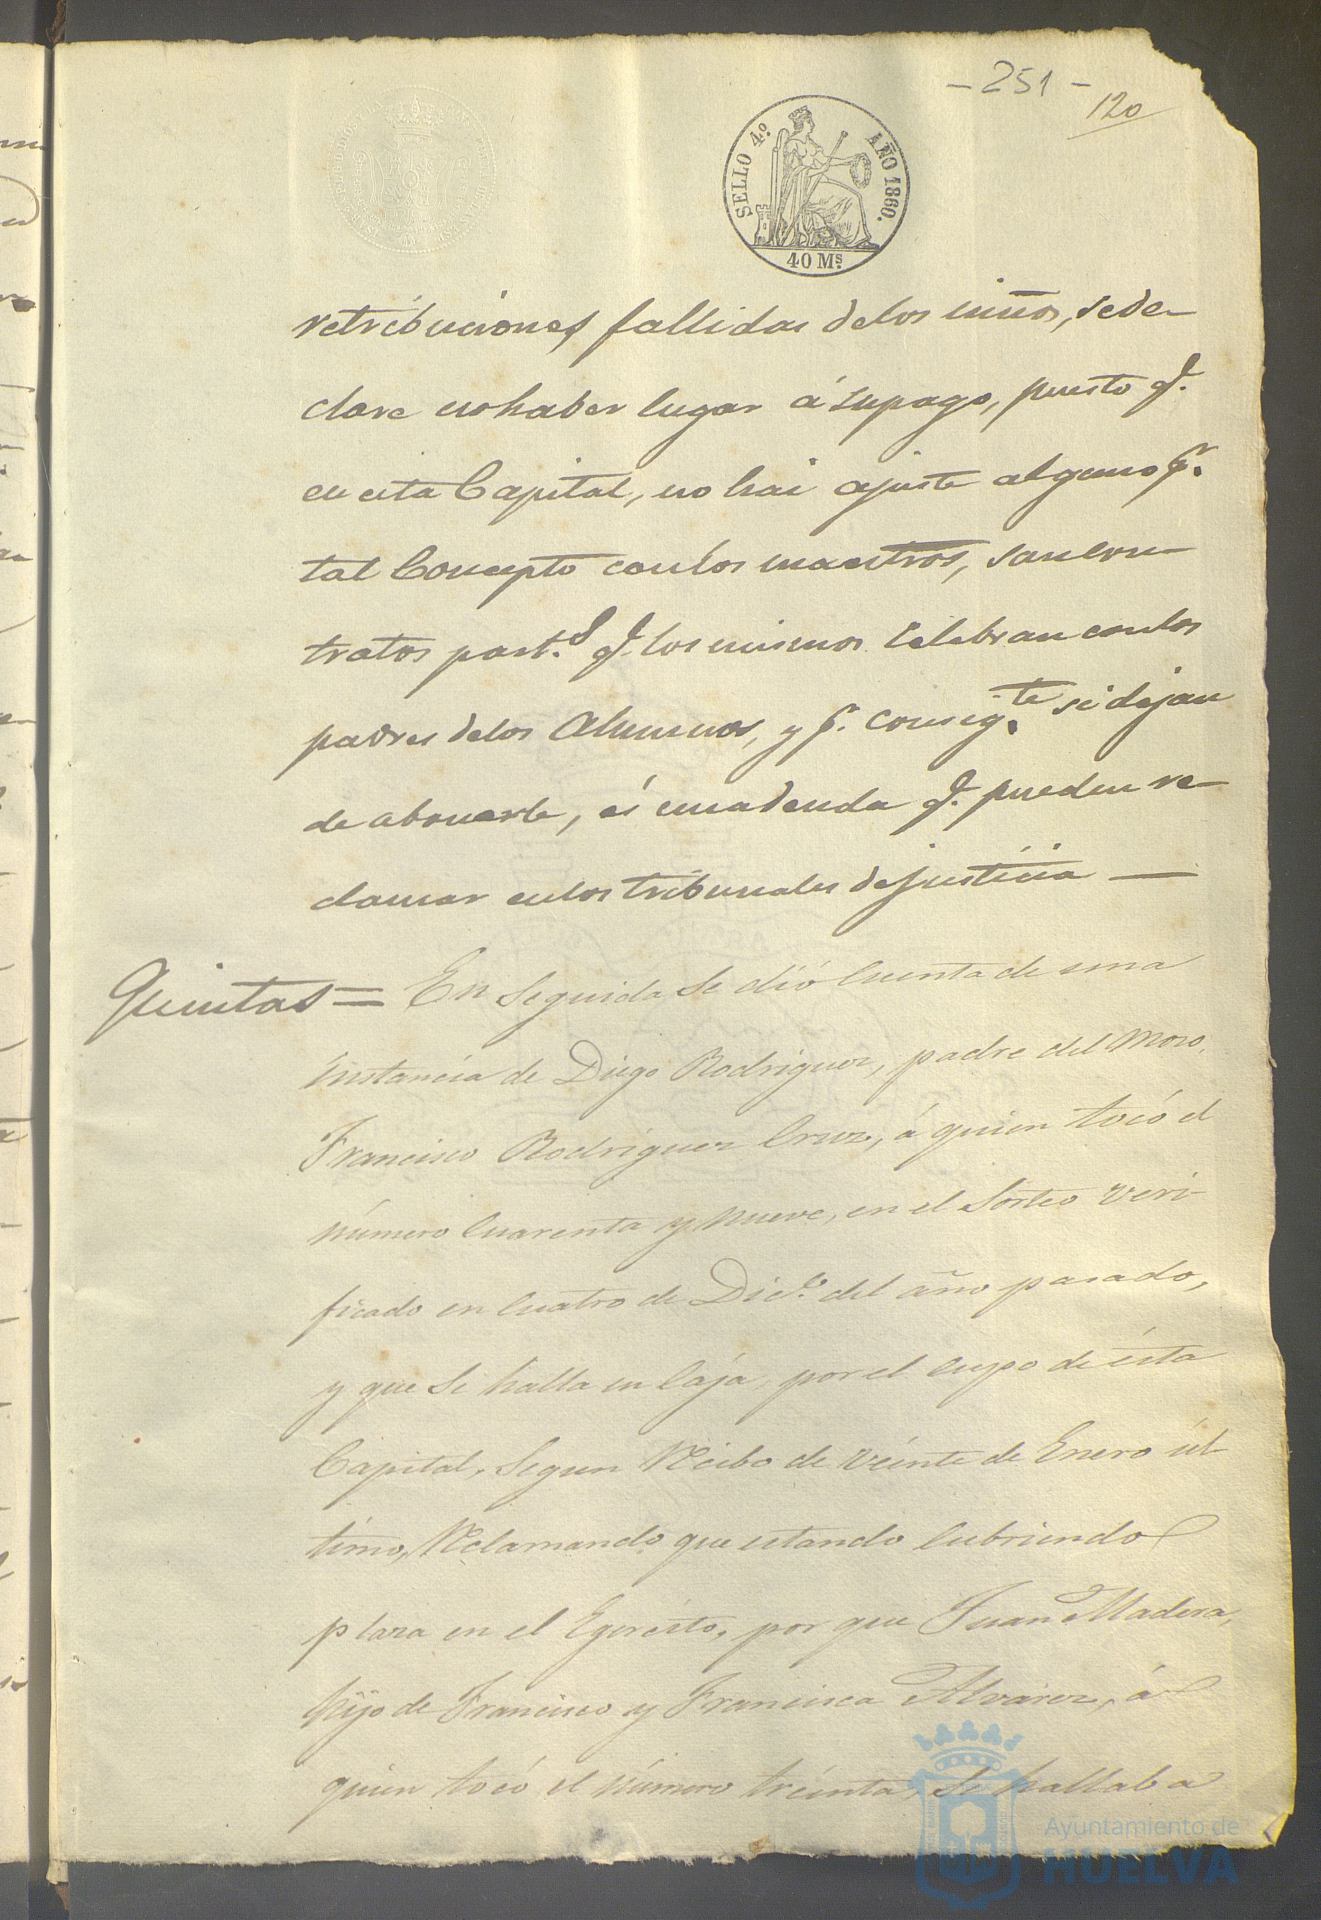 - 251 -
120
SELLO 4.º AÑO 1860.
40 Ms.
retribuciones fallidas delos niños, sede-
clare nohaber lugar á supago, puesto q.
en esta Capital, no hai ajuste alguno p.r
tal Concepto conlos maestros, sancon-
tratos part.s q. los mismos celebran conlos
padres delos Alumnos, y p.r consig.te si dejan
de abonarle, és unadeuda q. pueden re-
clamar enlos tribunales dejusticia —
Quintas = En seguida se dió cuenta de una
instancia de Diego Rodriguez, padre del Mozo,
Francisco Rodriguez Cruz, á quien tocó el
número cuarenta y nueve, en el Sorteo veri-
ficado en cuatro de Dic.e del año pasado,
y que se halla en Cája, por el cupo de ésta
Capital, segun Recibo de veinte de Enero úl-
timo, Reclamando que estando cubriendo
plaza en el Egército, por que Juan Madera,
hijo de Francisco y Francisca Alvarez, á
quien tocó el número treinta, se hallaba
Ayuntamiento de
HUELVA